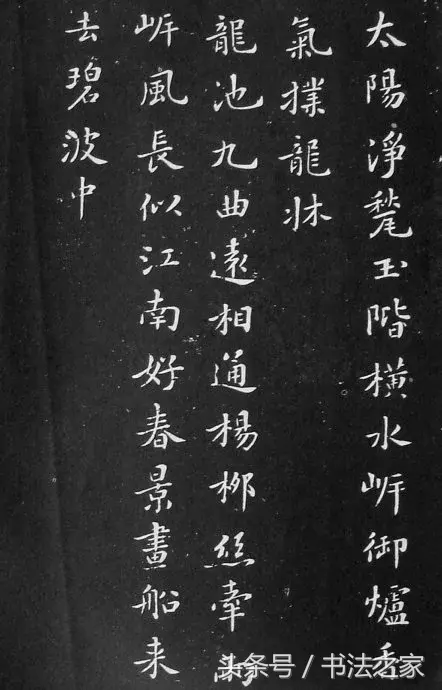 太陽淨甃玉階橫水岸御爐香
氣撲龍牀
龍池九曲遠相通楊柳絲牽
岸風長似江南好春景畫船来
去碧波中
头条号 / 书法之家